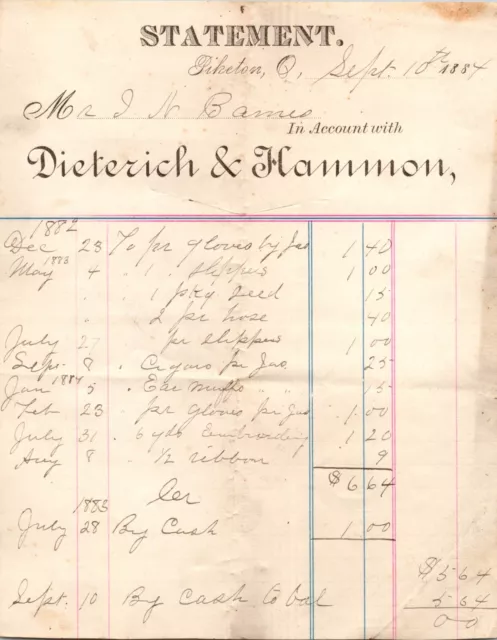 STATEMENT.
Piketon, O, Sept. 10th 1884
Mr I N Barnes
In Account with
Dieterich & Hammon,
1882
Dec 23 To pr gloves by Jas 1 40
May 1883 4 " 1 " slippers 1 00
" " 1 pkg seed 15
" " 2 pr hose 40
July 27 " pr slippers 1 00
Sept. 8 " Cigars pr Jas. 25
Jan 1884 5 " Ear muffs " " 15
Feb 23 " pr gloves pr Jas 1 00
July 31 " 6 yds Embroidery 1 20
Aug 8 " 1/2 ribbon 9
$6 64
Cr
1883
July 28 By Cash 1 00
$5 64
Sept. 10 By cash to bal 5 64
00